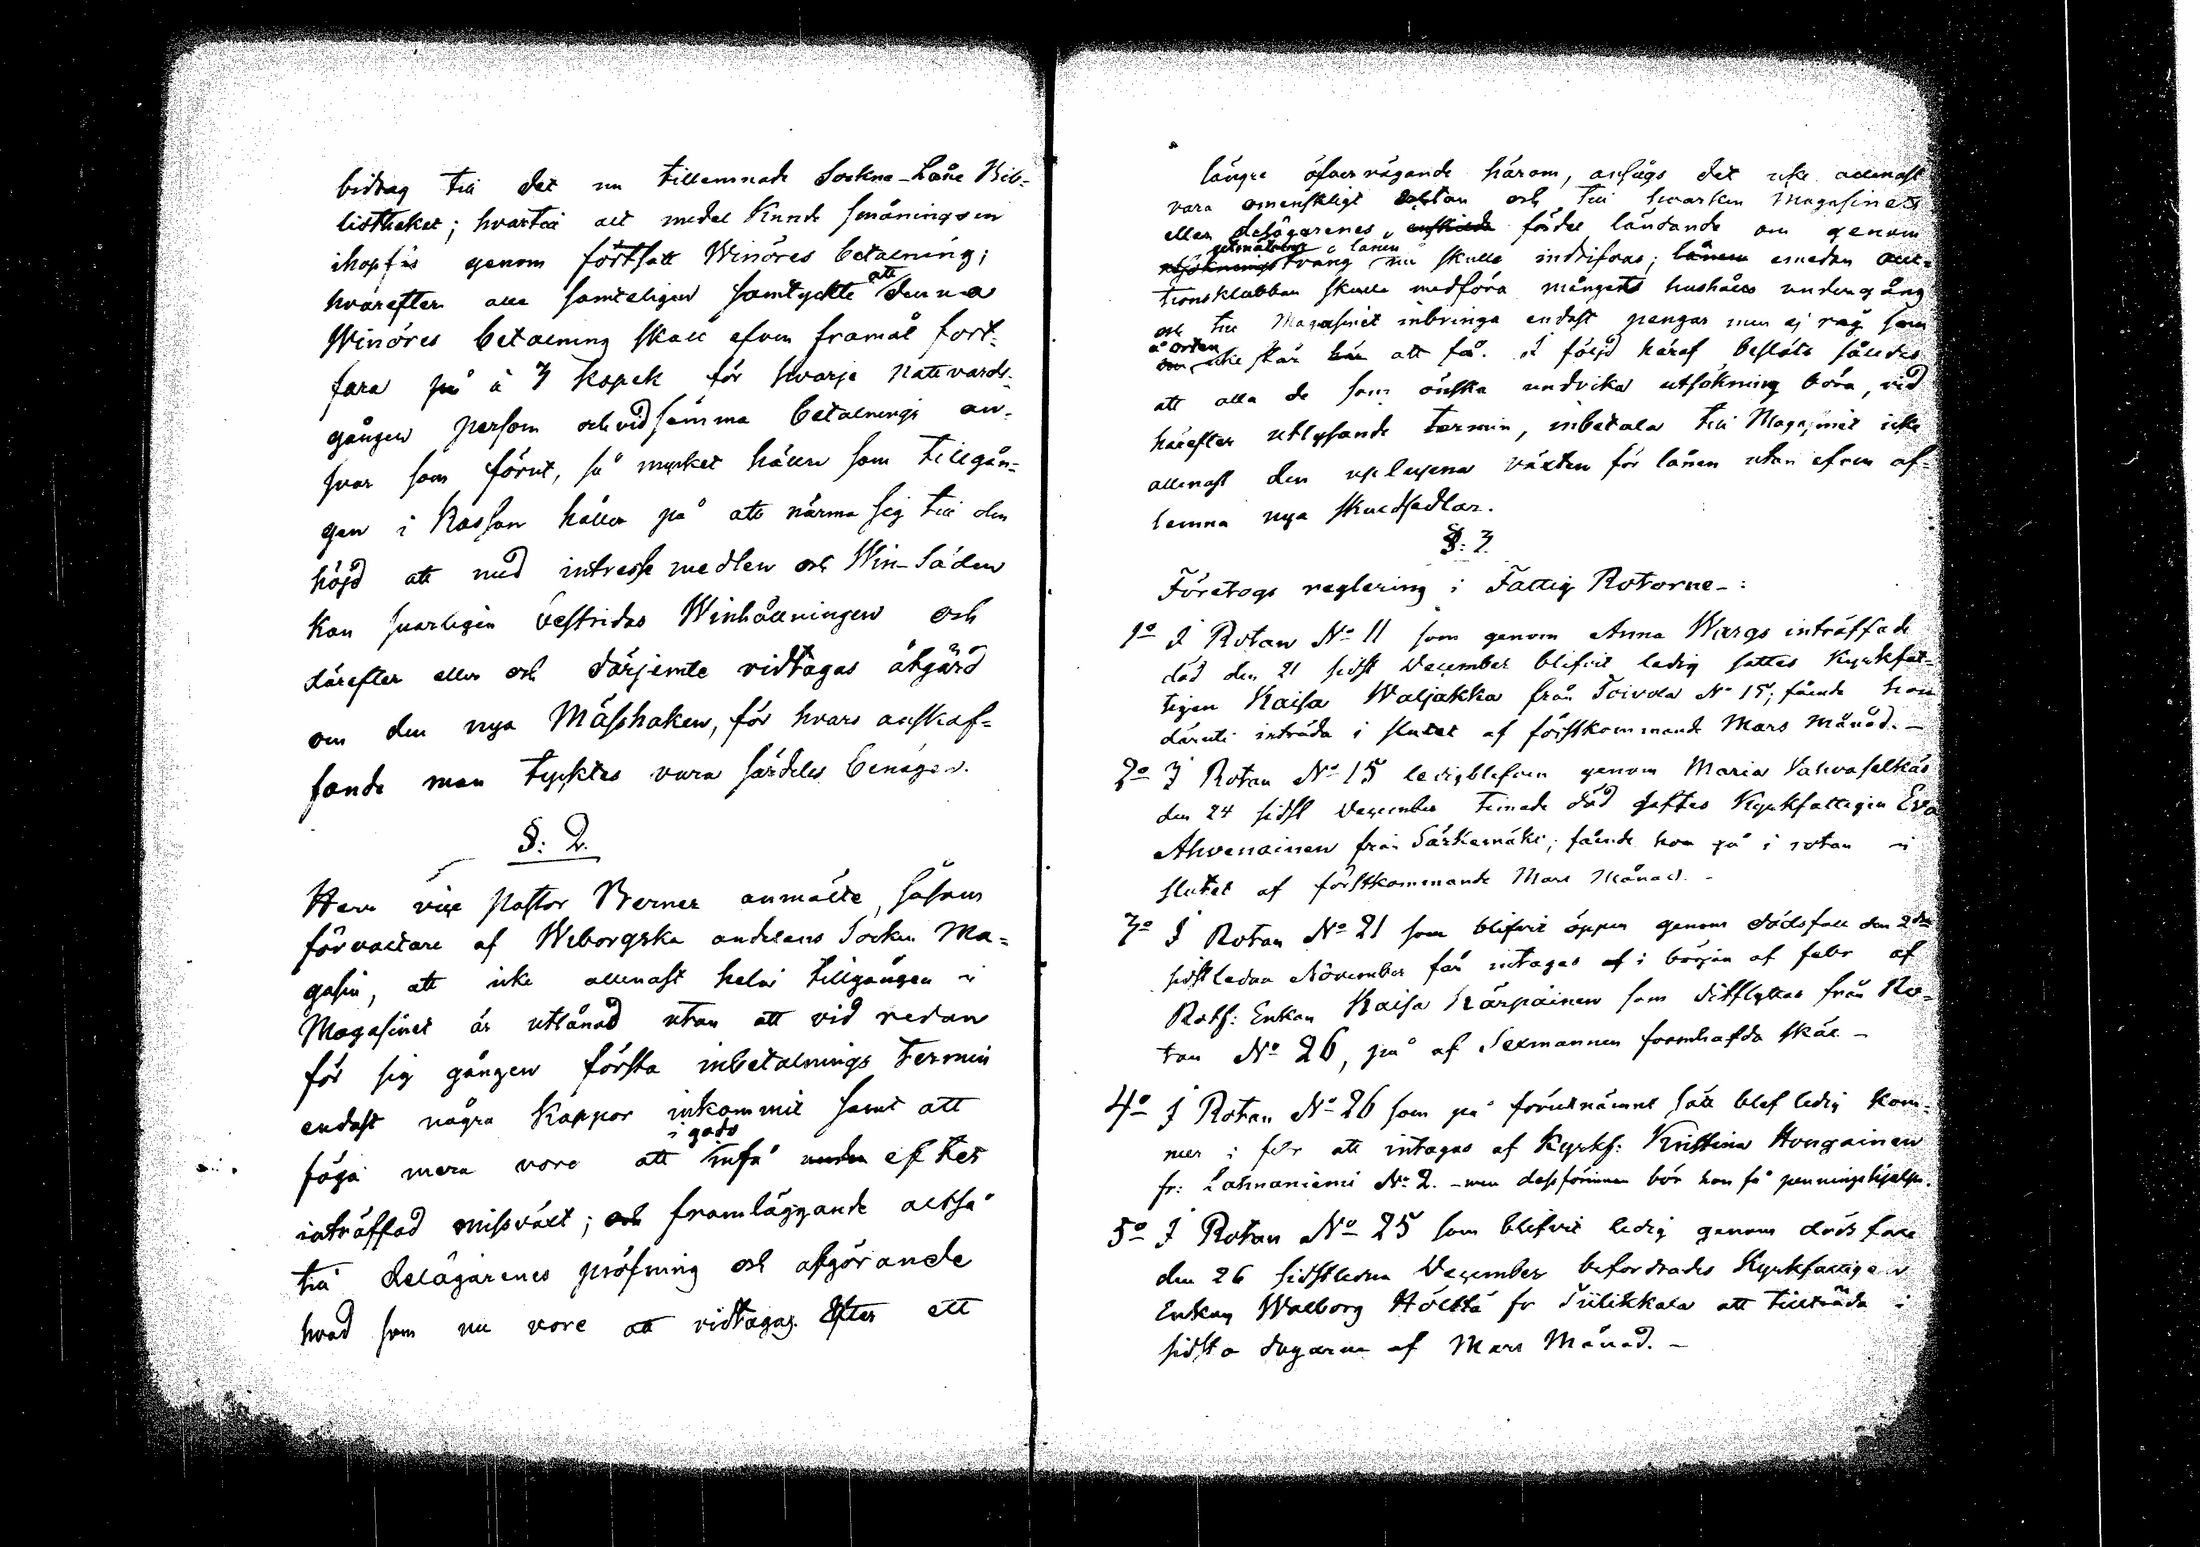 bidrag till det nu tillemnade Sockne-Låne Bib=
liotheket; hvartill allt medel kunde småningom
ihopfås genom fortsatt Winöres betalning;
hvarefter alla samteligen samtyckte att denna
Winöres betalning skall efven framåt fort-
fara på à 3 kopek för hvarje nattvards-
gången person och vid samma betalnings an-
svar som förut, så mycket hällre som tillgån=
gen i Kassan håller på att närma sig till den
höjd att med intresse medlen och Win-Säden
kan svarligen bestridas Winhållningen och
därefter eller och därjemte vidtagas åtgärd
om den nya Mässhaken, för hvars anskaf=
fande man tycktes vara särdeles benägen.
§: 2.
Herr vice Pastor Berner anmälte, såsom
förvaltare af Wiborgska andelens Socken Ma=
gasin, att icke allenast hela tillgången i
Magasinet är utlånad utan att vid redan
för sig gången första inbetalnings termin
endast några Kappor inkommit samt att
i gods
föga mera vore att infå efter
inträffad missväxt; och framläggande altså
till delägarenes pröfning och afgörande
hvad som nu vore att vidtagas. Efter ett
längre öfvervägande härom, ansågs det icke allenast
vara omenskligt utan och till hvarken Magasinets
eller delägarenes enskilda fördel ländande om genom
lånen
utsökningstvång nu skulle indrifvas; lånen emedan auc=
tionsklubban skulle medföra mångens hushålls undergång
och till Magasinet inbringa endast pengar men ej råg som
å orten
icke står här att få. I följd häraf beslöts således
att alla de som önska undvika utsökning böra, vid
härefter utlysande termin, inbetala till Magasinet icke
allenast den uplupna växten för lånen utan efven af-
lemna nya skuldsedlar.
§: 3.
Företogs reglering i Fattig Rotorne-:
1o I Rotan No 11 som genom Anna Wargs inträffade
död den 21 sidst December blifvit ledig sattes Kyrkfat=
tigen Kaisa Waljakka från Toivola No 15; fående hon
däruti inträda i slutet af förstkommande Mars Månad. -
2o I Rotan No 15 ledigblefven genom Maria Lahvaselkäs
den 24 sidst December timade död sattes Kyrkfattigen Eva
Ahvenainen från Särkemäki; fående hon gå i rotan i
slutet af förstkommande Mars Månad. -
3o I Rotan No 21 som blifvit öppen genom dödsfall den 2dra
sidstledna November får intagas af i början af febr af
Roth: Enkan Kaisa Kärpäinen som ditflyttas från Ro-
tan No 26, på af Sexmannen framhafda skäl -
4o I Rotan No 26 som på förutnämnt sätt blef ledig kom-
mer i febr att intagas af Kyrkf: Kristina Hongainen
fr: Lahnaniemi No 2. - men dessförinnan bör hon få penningehjelp.
5o I Rotan No 25 som blifvit ledig genom dödsfall
den 26 sidstledne December befordrades Kyrkfattigen
Enkan Walborg Hölttä fr Tiilikkala att tillträda i
sidsta dagarna af Mars Månad. -